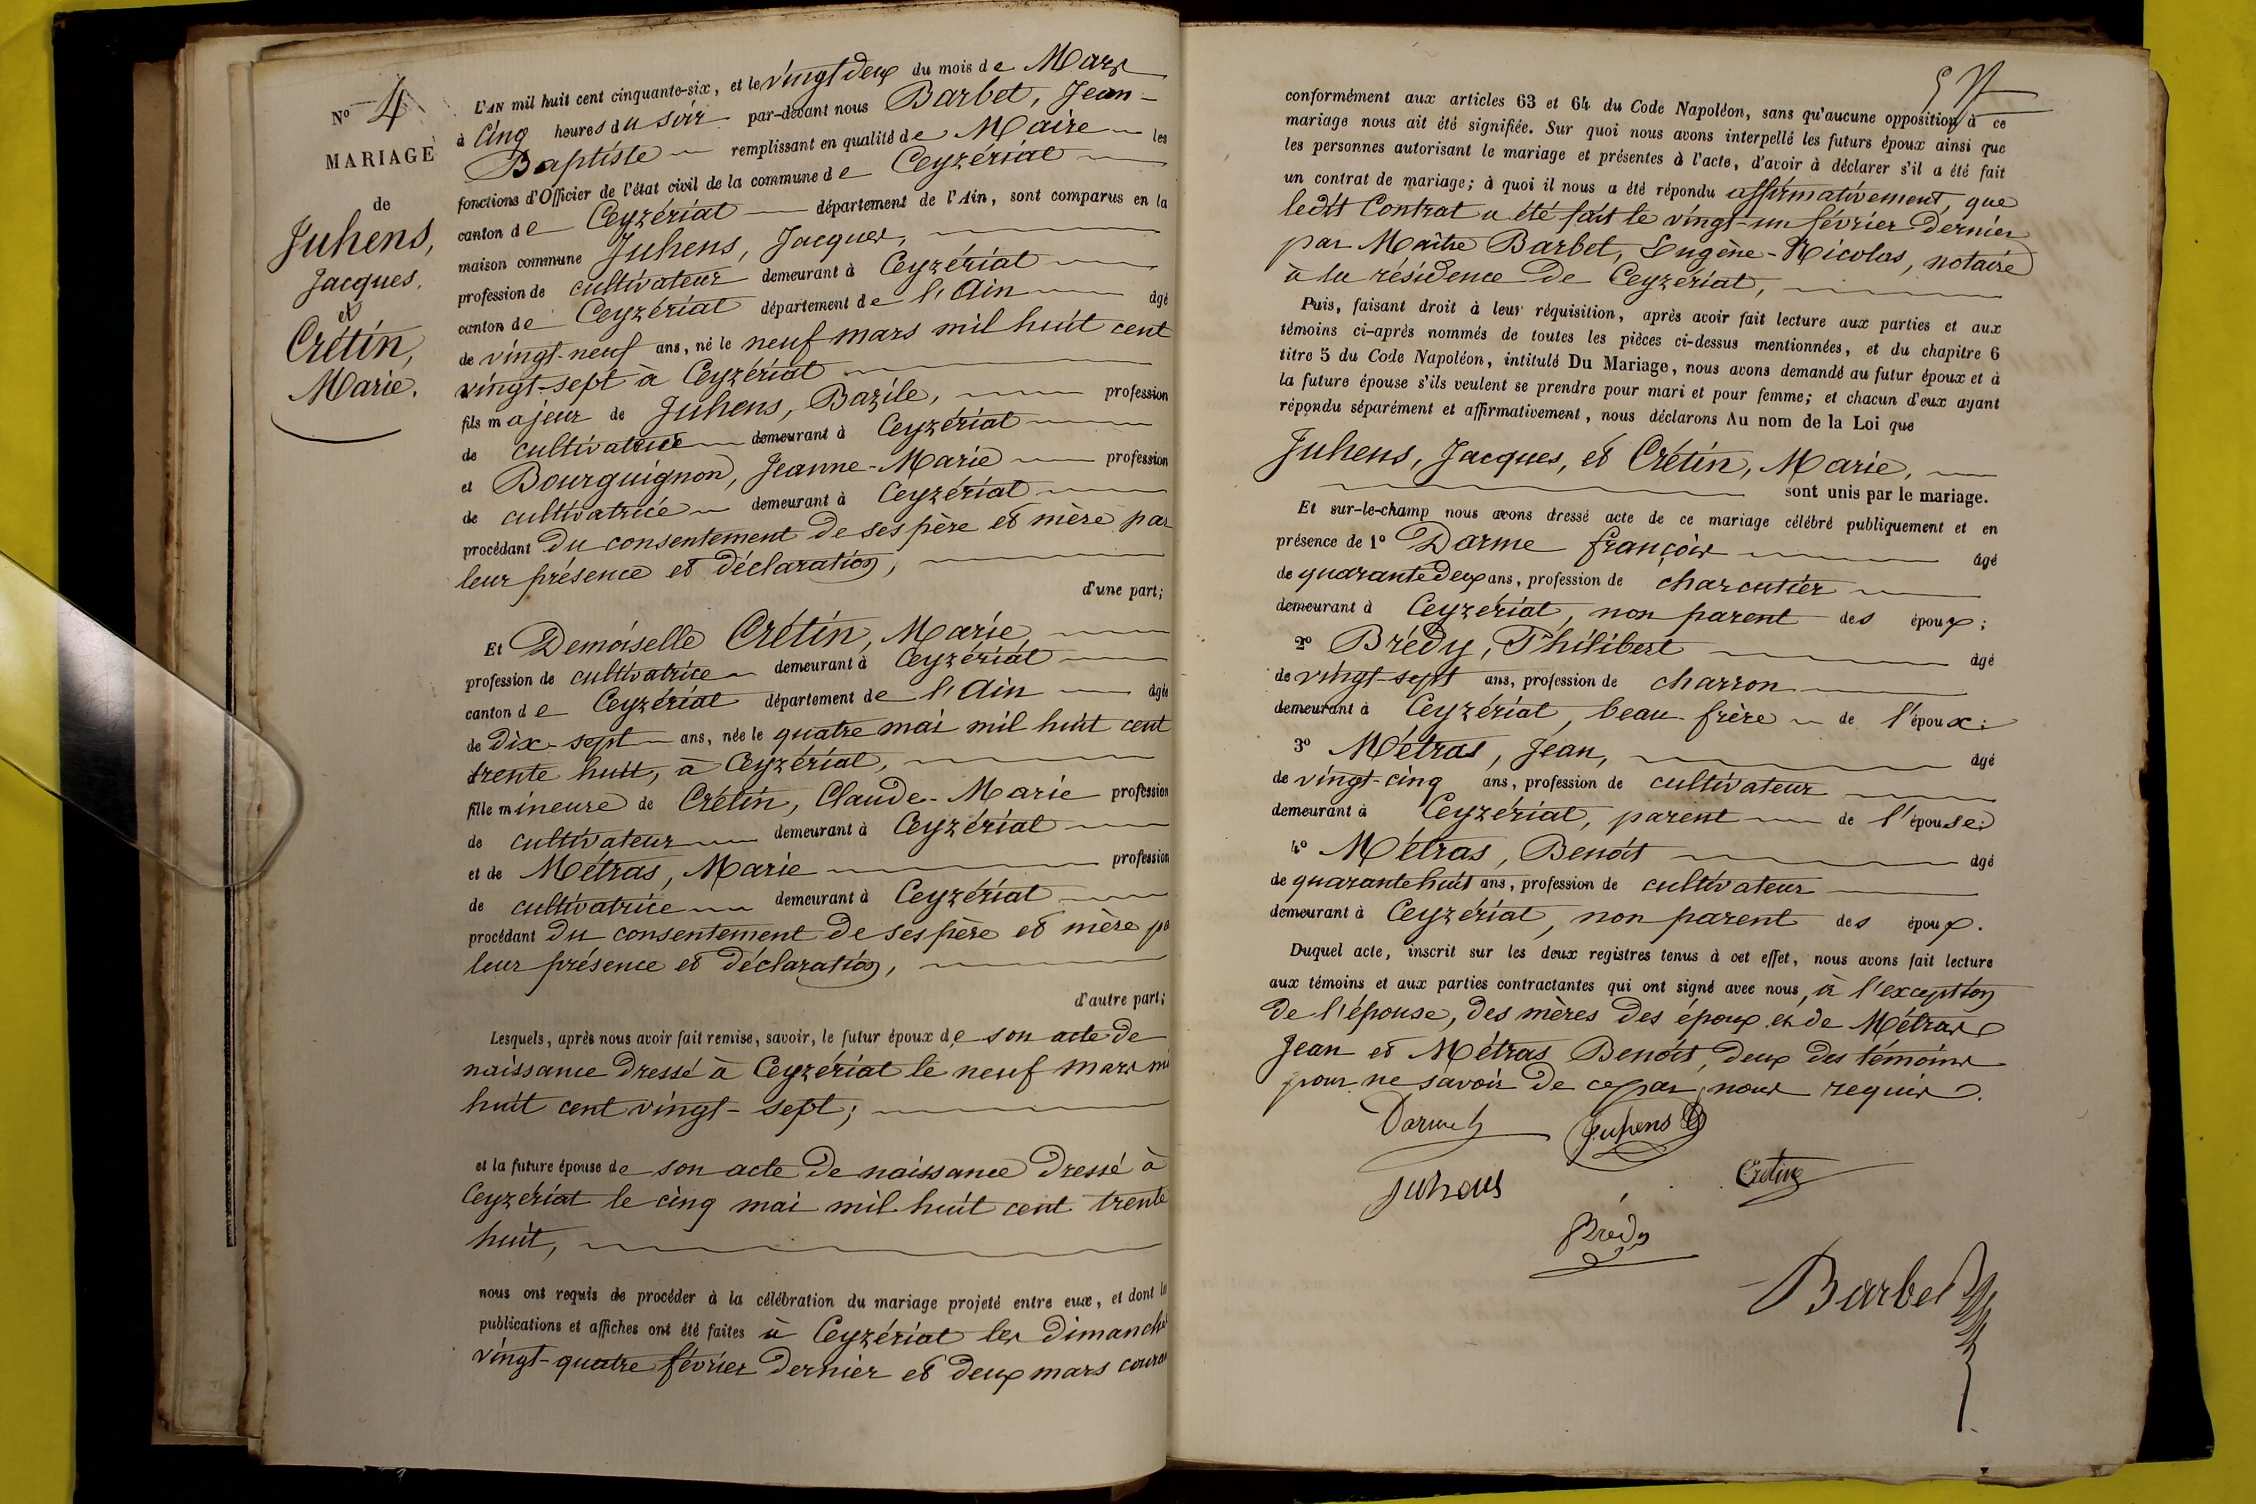 N° 4
MARIAGE
de
Juhens,
Jacques,
et
Crétin,
Marie.
L'AN mil huit cent cinquante-six, et le vingt deux du mois de Mars
à cinq heures du soir par-devant nous Barbet, Jean-
Baptiste remplissant en qualité de Maire les
fonctions d'Officier de l'état civil de la commune de Ceyzériat
canton de Ceyzériat département de l'Ain, sont comparus en la
maison commune Juhens, Jacques,
profession de cultivateur demeurant à Ceyzériat
canton de Ceyzériat département de l'Ain âgé
de vingt-neuf ans, né le neuf mars mil huit cent
vingt-sept à Ceyzériat
fils majeur de Juhens, Bazile, profession
de cultivateur demeurant à Ceyzériat
et Bourguignon, Jeanne-Marie profession
de cultivatrice demeurant à Ceyzériat
procédant du consentement de ses père et mère par
leur présence et déclaration,
d'une part;
Et Demoiselle Crétin, Marie,
profession de cultivatrice demeurant à Ceyzériat
canton de Ceyzériat département de l'Ain âgée
de dix-sept ans, née le quatre mai mil huit cent
trente huit, à Ceyzériat,
fille mineure de Crétin, Claude-Marie profession
de cultivateur demeurant à Ceyzériat
et de Métras, Marie profession
de cultivatrice demeurant à Ceyzériat
procédant du consentement de ses père et mère pa
leur présence et déclaration,
d'autre part;
Lesquels, après nous avoir fait remise, savoir, le futur époux de son acte de
naissance dressé à Ceyzériat le neuf mars mi
huit cent vingt-sept;
et la future épouse de son acte de naissance dressé à
Ceyzériat le cinq mai mil huit cent trente
huit,
nous ont requis de procéder à la célébration du mariage projeté entre eux, et dont les
publications et affiches ont été faites à Ceyzériat les dimanches
vingt-quatre février dernier et deux mars couran
conformément aux articles 63 et 64 du Code Napoléon, sans qu'aucune opposition à ce
mariage nous ait été signifiée. Sur quoi nous avons interpellé les futurs époux ainsi que
les personnes autorisant le mariage et présentes à l'acte, d'avoir à déclarer s'il a été fait
un contrat de mariage; à quoi il nous a été répondu affirmativement, que
ledit Contrat a été fait le vingt-un février dernier
par Maître Barbet, Eugène-Nicolas, notaire
à la résidence de Ceyzériat,
Puis, faisant droit à leur réquisition, après avoir fait lecture aux parties et aux
témoins ci-après nommés de toutes les pièces ci-dessus mentionnées, et du chapitre 6
titre 5 du Code Napoléon, intitulé Du Mariage, nous avons demandé au futur époux et à
la future épouse s'ils veulent se prendre pour mari et pour femme; et chacun d'eux ayant
répondu séparément et affirmativement, nous déclarons Au nom de la Loi que
Juhens, Jacques, et Crétin, Marie,
sont unis par le mariage.
Et sur-le-champ nous avons dressé acte de ce mariage célébré publiquement et en
présence de 1° Darme françois âgé
de quarante deux ans, profession de charcutier
demeurant à Ceyzériat, non parent des époux;
2° Brédy, Philibert âgé
de vingt-sept ans, profession de charron
demeurant à Ceyzériat, beau-frère de l'époux;
3° Métras, Jean, âgé
de vingt-cinq ans, profession de cultivateur
demeurant à Ceyzériat, parent de l'épouse;
4° Métras, Benoît âgé
de quarante huit ans, profession de cultivateur
demeurant à Ceyzériat, non parent des époux.
Duquel acte, inscrit sur les deux registres tenus à cet effet, nous avons fait lecture
aux témoins et aux parties contractantes qui ont signé avec nous, à l'exception
de l'épouse, des mères des époux et de Métras
Jean et Métras Benoît, deux des témoins
pour ne savoir de ce par nous requis.
Darme
Juhens
Juhens
Cretin
Brédy
Barbet